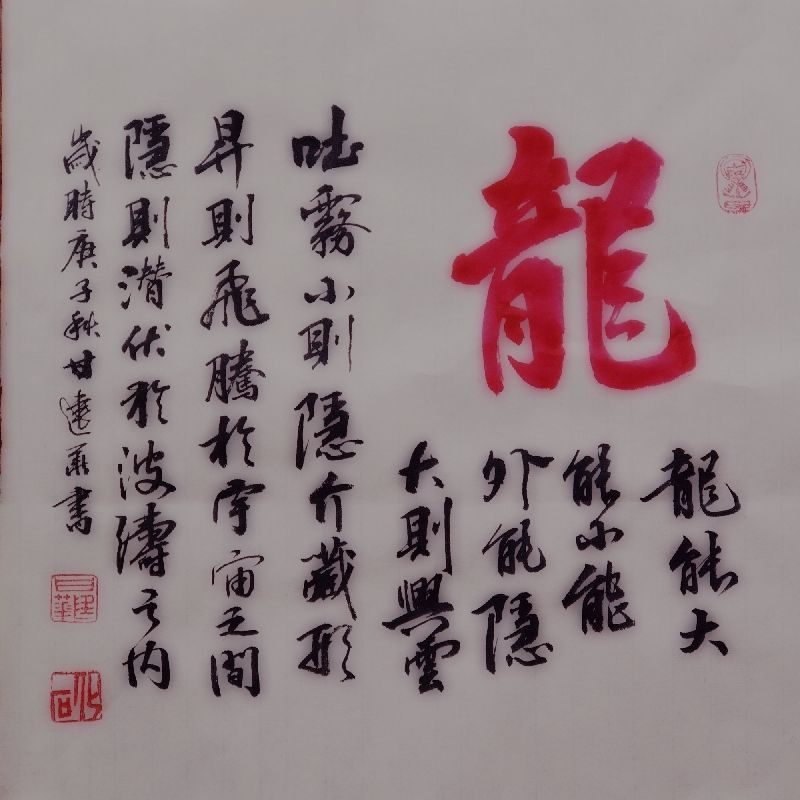 龍
龍能大
能小能
外能隱
大則興雲
吐霧小則隱介藏形
昇則飛騰於宇宙之間
隱則潛伏於波濤之內
歲時庚子秋甘達華書